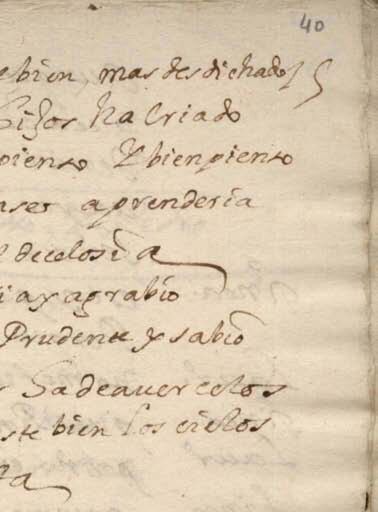 40
bien, mas desdichado
hijos ha Criado
pienso Y bien pienso
aprenderia
de celosia
ia y agrabio
Prudente y sabio
ha de aver celos
ste bien los cielos
ta